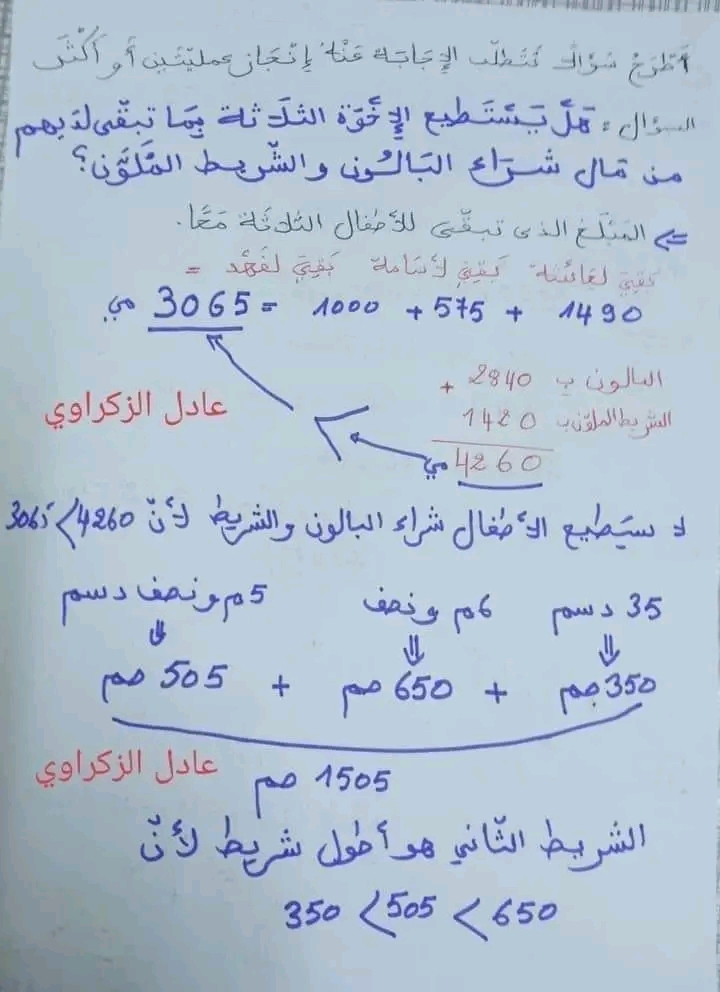 أَطْرَحُ سُؤَالًا تَتَطَلَّبُ الإِجَابَةُ عَنْهُ إِنْجَازَ عمليّتَين أَو أَكْثَرَ
السؤال : هَلْ يَسْتَطيع الإِخْوَة الثلَاثَة بِمَا تبقّى لديهم
من مَال شِرَاءَ البَالُون والشّريط المُلَوَّن؟
⇐ المَبْلَغ الذي تبقّى للأطفال الثلاثة مَعًا.
بَقِيَ لعَائشة بَقِيَ لأسَامة بَقِيَ لفَهْد =
1490 + 575 + 1000 = 3065 مي
البالون ب 2840 +
الشريط الملوّن ب 1420
عادل الزكراوي
4260 مي
لا يستَطيع الأطفال شراء البالون والشريط لأنّ 4260 > 3065
35 دسم 6م ونصف 5م ونصف دسم
⇓ ⇓ ⇓
350صم + 650 صم + 505 صم
عادل الزكراوي
1505 صم
الشريط الثّاني هو أطول شريط لأنّ
650 > 505 > 350